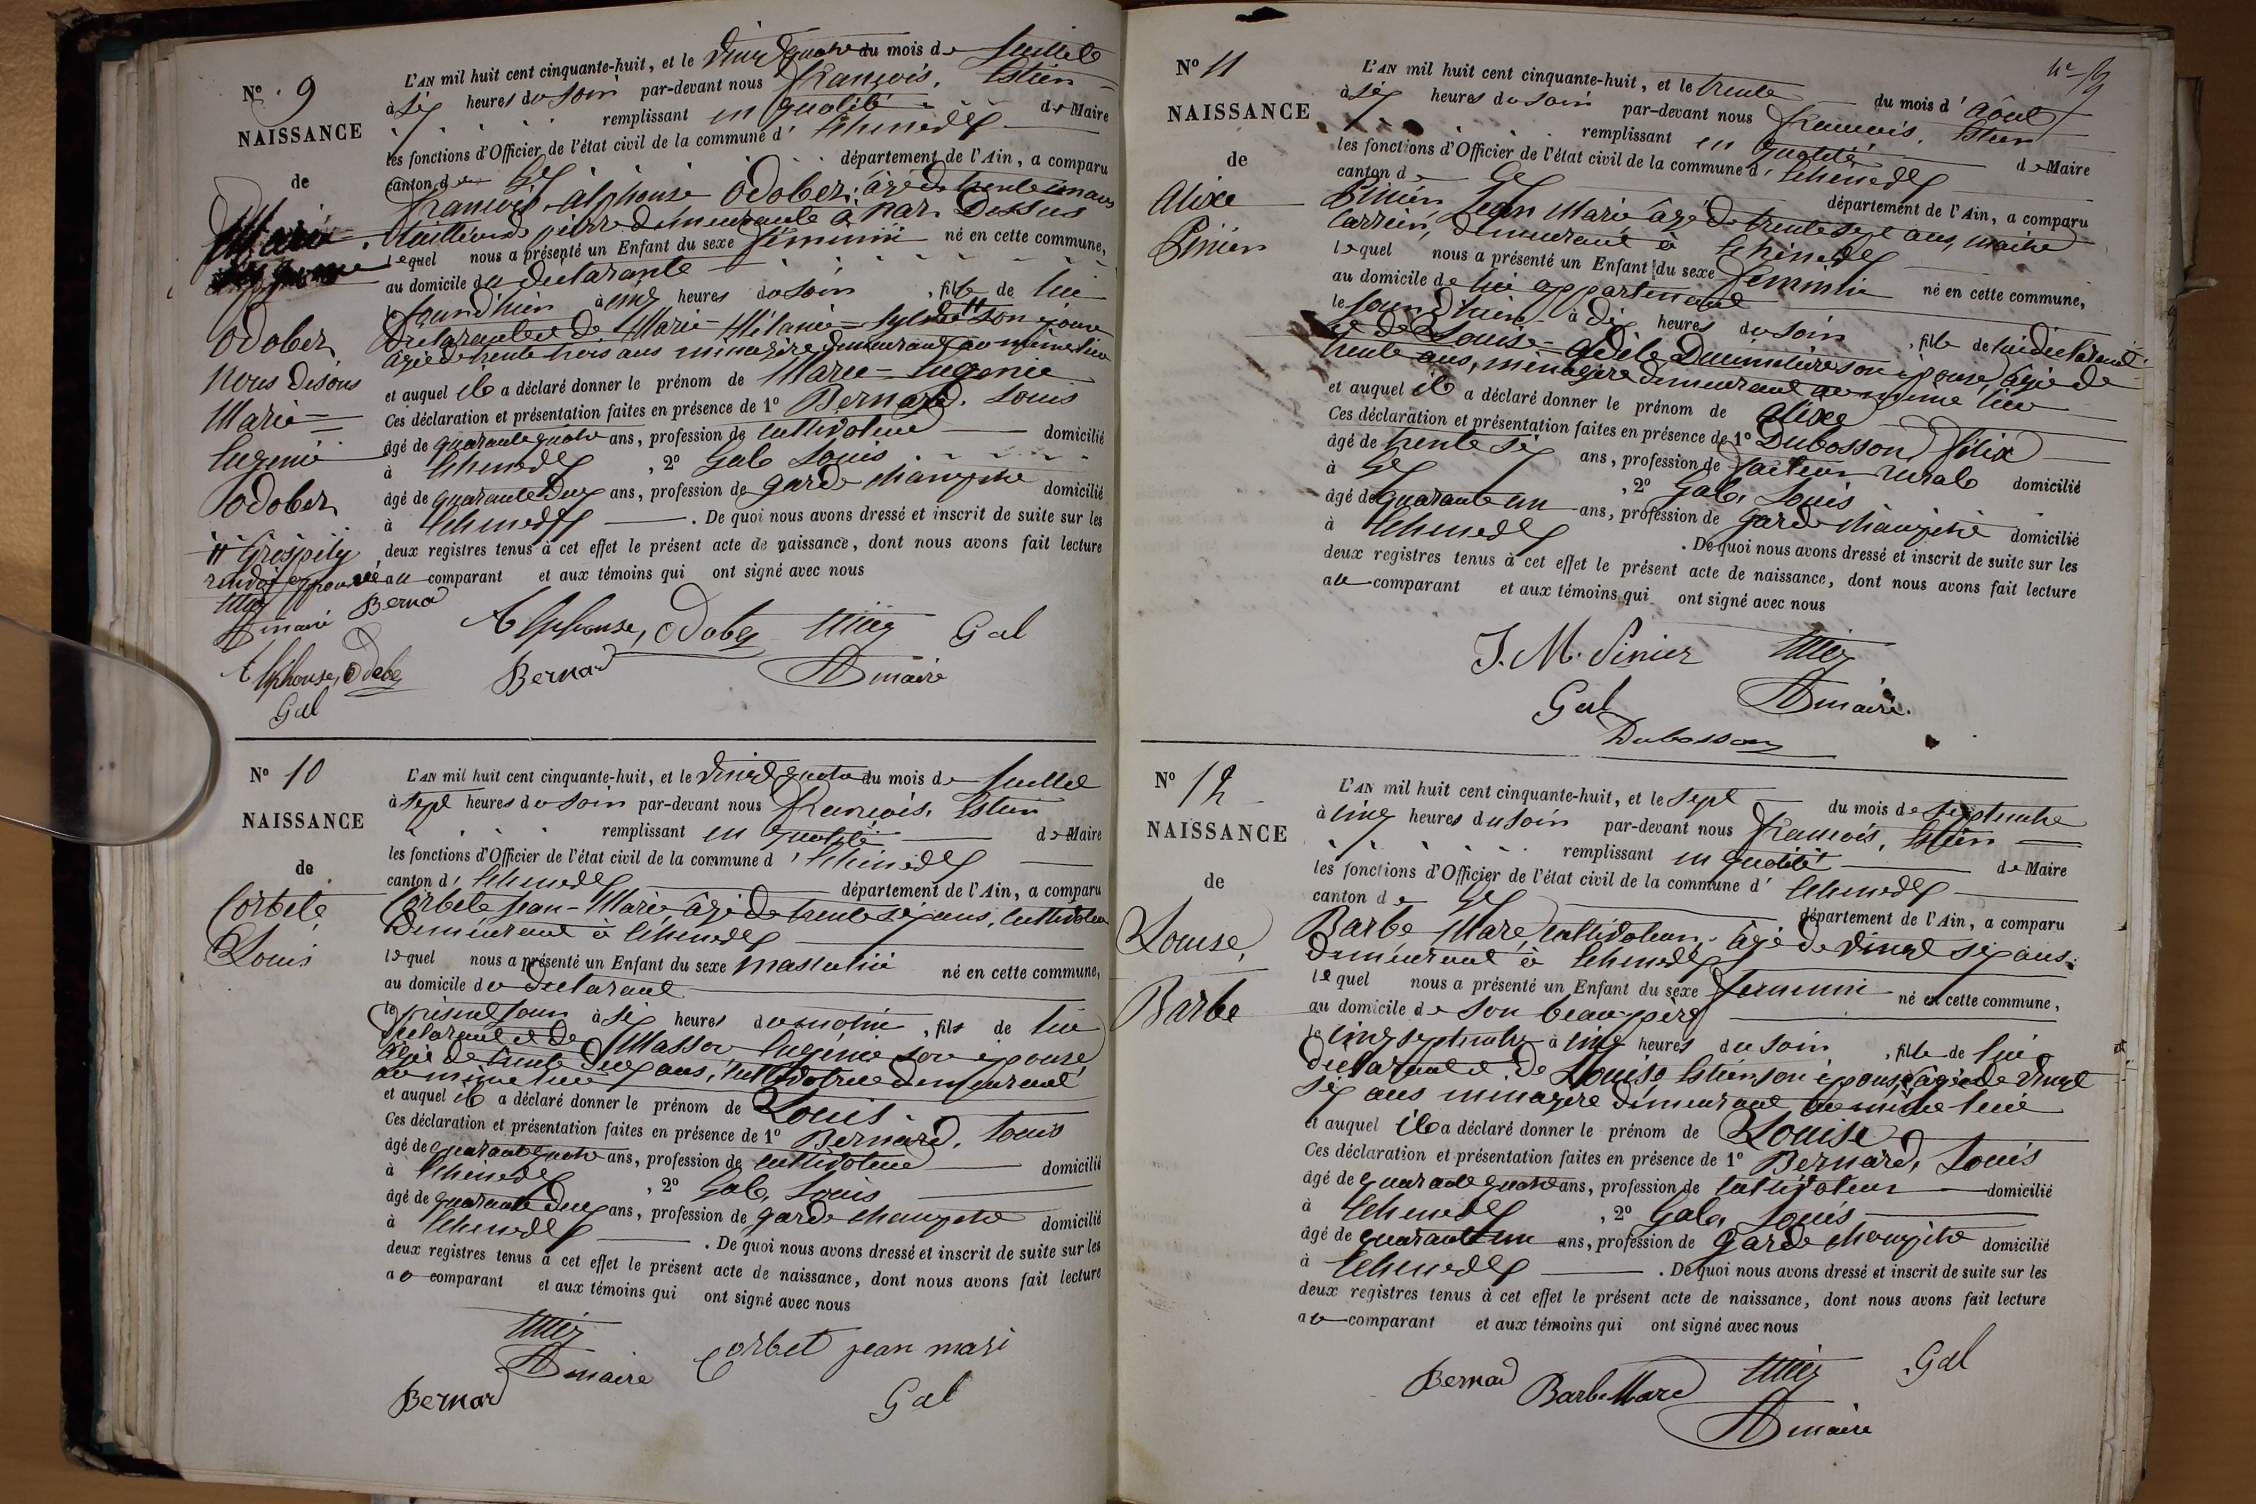 N° 9
NAISSANCE
de
Marie
Odobez
Nous disons
Marie =
Eugenie
Odobez
Grospity
renvoi approuvé
maire Bernad
Alphouse, Odobez
Gal
L'AN mil huit cent cinquante-huit, et le vingt quatre du mois de Juillet
à six heures du soir par-devant nous François, Estier
remplissant en qualité de Maire
les fonctions d'Officier de l'état civil de la commune d' Echenevex
canton de Gex département de l'Ain, a comparu
François Alphonse Odobez, âgé de trente un ans
tailleur de pierre demeurant à Naz Dessus
lequel nous a présenté un Enfant du sexe féminin né en cette commune,
au domicile du déclarant
le jourd'hui à cinq heures du soir, fille de lui
déclarant et de Marie Mélanie son épouse
âgée de trente trois ans ménagère demeurant au même lieu
et auquel il a déclaré donner le prénom de Marie = Eugenie
Ces déclaration et présentation faites en présence de 1° Bernard, Louis
âgé de quarante quatre ans, profession de cultivateur domicilié
à Echenevex, 2° Gal, Louis
âgé de quarante deux ans, profession de garde champêtre domicilié
à Echenevex. De quoi nous avons dressé et inscrit de suite sur les
deux registres tenus à cet effet le présent acte de naissance, dont nous avons fait lecture
au comparant et aux témoins qui ont signé avec nous
Alphouse, Odobez Gal
Bernad maire
N° 10
NAISSANCE
de
Corbet
Louis
L'AN mil huit cent cinquante-huit, et le vingt quatre du mois de Juillet
à sept heures du soir par-devant nous François, Estier
remplissant en qualité de Maire
les fonctions d'Officier de l'état civil de la commune d' Echenevex
canton d' Echenevex département de l'Ain, a comparu
Corbet Jean-Marie âgé de trente six ans, cultivateur
demeurant à Echenevex
lequel nous a présenté un Enfant du sexe masculin né en cette commune,
au domicile du déclarant
le présent jour à six heures du matin, fils de lui
déclarant et de Masson Eugénie son épouse
âgée de trente deux ans, cultivatrice demeurant
au même lieu
et auquel il a déclaré donner le prénom de Louis
Ces déclaration et présentation faites en présence de 1° Bernard, Louis
âgé de quarante quatre ans, profession de cultivateur domicilié
à Echenevex, 2° Gal, Louis
âgé de quarante deux ans, profession de garde champêtre domicilié
à Echenevex. De quoi nous avons dressé et inscrit de suite sur les
deux registres tenus à cet effet le présent acte de naissance, dont nous avons fait lecture
au comparant et aux témoins qui ont signé avec nous
maire Corbet jean mari
Bernar Gal
N° 11
NAISSANCE
de
Alixe
Pinier
L'AN mil huit cent cinquante-huit, et le trente du mois d'Aôut
à six heures du soir par-devant nous François, Estier
remplissant en qualité de Maire
les fonctions d'Officier de l'état civil de la commune d' Echenevex
canton de Gex département de l'Ain, a comparu
Pinier, Jean Marie, âgé de trente sept ans, maître
carrier, demeurant à Echenevex
lequel nous a présenté un Enfant du sexe féminin né en cette commune,
au domicile de lui appartenant
le jourd'hui à dix heures du soir, fille de lui déclarant
et de Louise-Adèle son épouse âgée de
trente ans, ménagère demeurant au même lieu
et auquel il a déclaré donner le prénom de Alixe
Ces déclaration et présentation faites en présence de 1° Dubosson, Félix
âgé de trente six ans, profession de facteur rural domicilié
à Gex, 2° Gal, Louis
âgé de quarante un ans, profession de garde champêtre domicilié
à Echenevex. De quoi nous avons dressé et inscrit de suite sur les
deux registres tenus à cet effet le présent acte de naissance, dont nous avons fait lecture
au comparant et aux témoins qui ont signé avec nous
J. M. Pinier
Gal maire
Dubosson
N° 12
NAISSANCE
de
Louise,
Barbe
L'AN mil huit cent cinquante-huit, et le sept du mois de septembre
à cinq heures du soir par-devant nous François, Estier
remplissant en qualité de Maire
les fonctions d'Officier de l'état civil de la commune d' Echenevex
canton de Gex département de l'Ain, a comparu
Barbe Marc, cultivateur, âgé de vingt six ans,
demeurant à Echenevex
lequel nous a présenté un Enfant du sexe féminin né en cette commune,
au domicile de son beau-père
le cinq septembre à cinq heures du soir, fille de lui
déclarant et de Louise Estier son épouse, âgée de vingt
six ans ménagère demeurant au même lieu
et auquel il a déclaré donner le prénom de Louise
Ces déclaration et présentation faites en présence de 1° Bernard, Louis
âgé de quarante quatre ans, profession de cultivateur domicilié
à Echenevex, 2° Gal, Louis
âgé de quarante un ans, profession de garde champêtre domicilié
à Echenevex. De quoi nous avons dressé et inscrit de suite sur les
deux registres tenus à cet effet le présent acte de naissance, dont nous avons fait lecture
au comparant et aux témoins qui ont signé avec nous
Bernad Barbe Marc Gal
maire